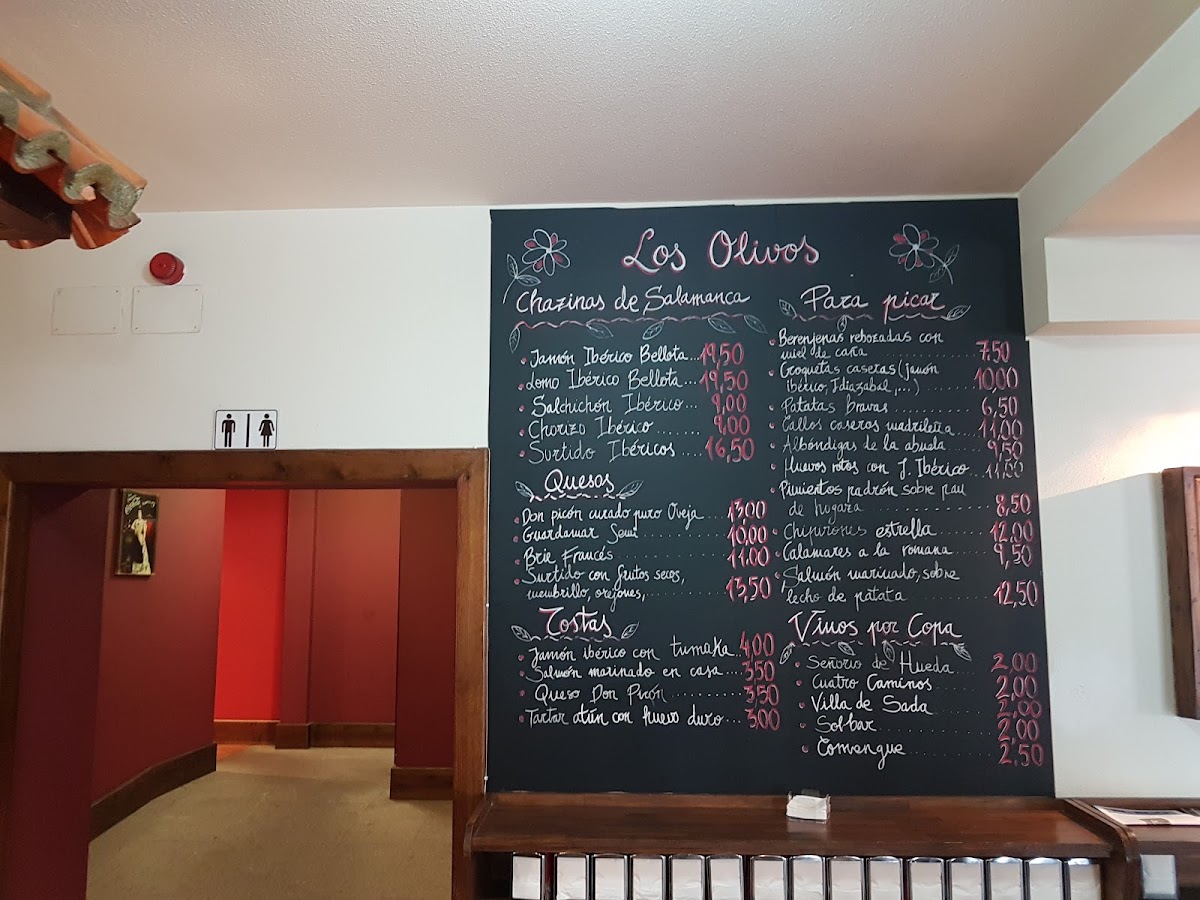 Los Olivos
Chazinas de Salamanca
Jamón Ibérico Bellota...19,50
Lomo Ibérico Bellota...19,50
Salchichón Ibérico...9,00
Chorizo Ibérico.....9,00
Surtido Ibéricos....16,50
Quesos
Don picón curado puro Oveja....13,00
Guardamar Semi..........10,00
Brie Francés..........11,00
Surtido con frutos secos,
membrillo, orejones,........13,50
Tostas
Jamón ibérico con tumaka..4,00
Salmón marinado en casa...3,50
Queso Don Picón..........3,50
Tartar atún con huevo duro...3,00
Para picar
Berenjenas rebozadas con
miel de caña..........7,50
Croquetas caseras (jamón
ibérico, Idiazabal,...).......10,00
Patatas bravas..........6,50
Callos caseros madrileña...11,00
Albóndigas de la abuela....9,50
Huevos rotos con J. Ibérico...11,50
Pimientos padrón sobre pan
de hogaza..........8,50
Chipirones estrella.......12,00
Calamares a la romana.....9,50
Salmón marinado, sobre
lecho de patata.........12,50
Vinos por Copa
Señorio de Hueda......2,00
Cuatro Caminos.......2,00
Villa de Sada........2,00
Solbar..........2,00
Comengue..........2,50